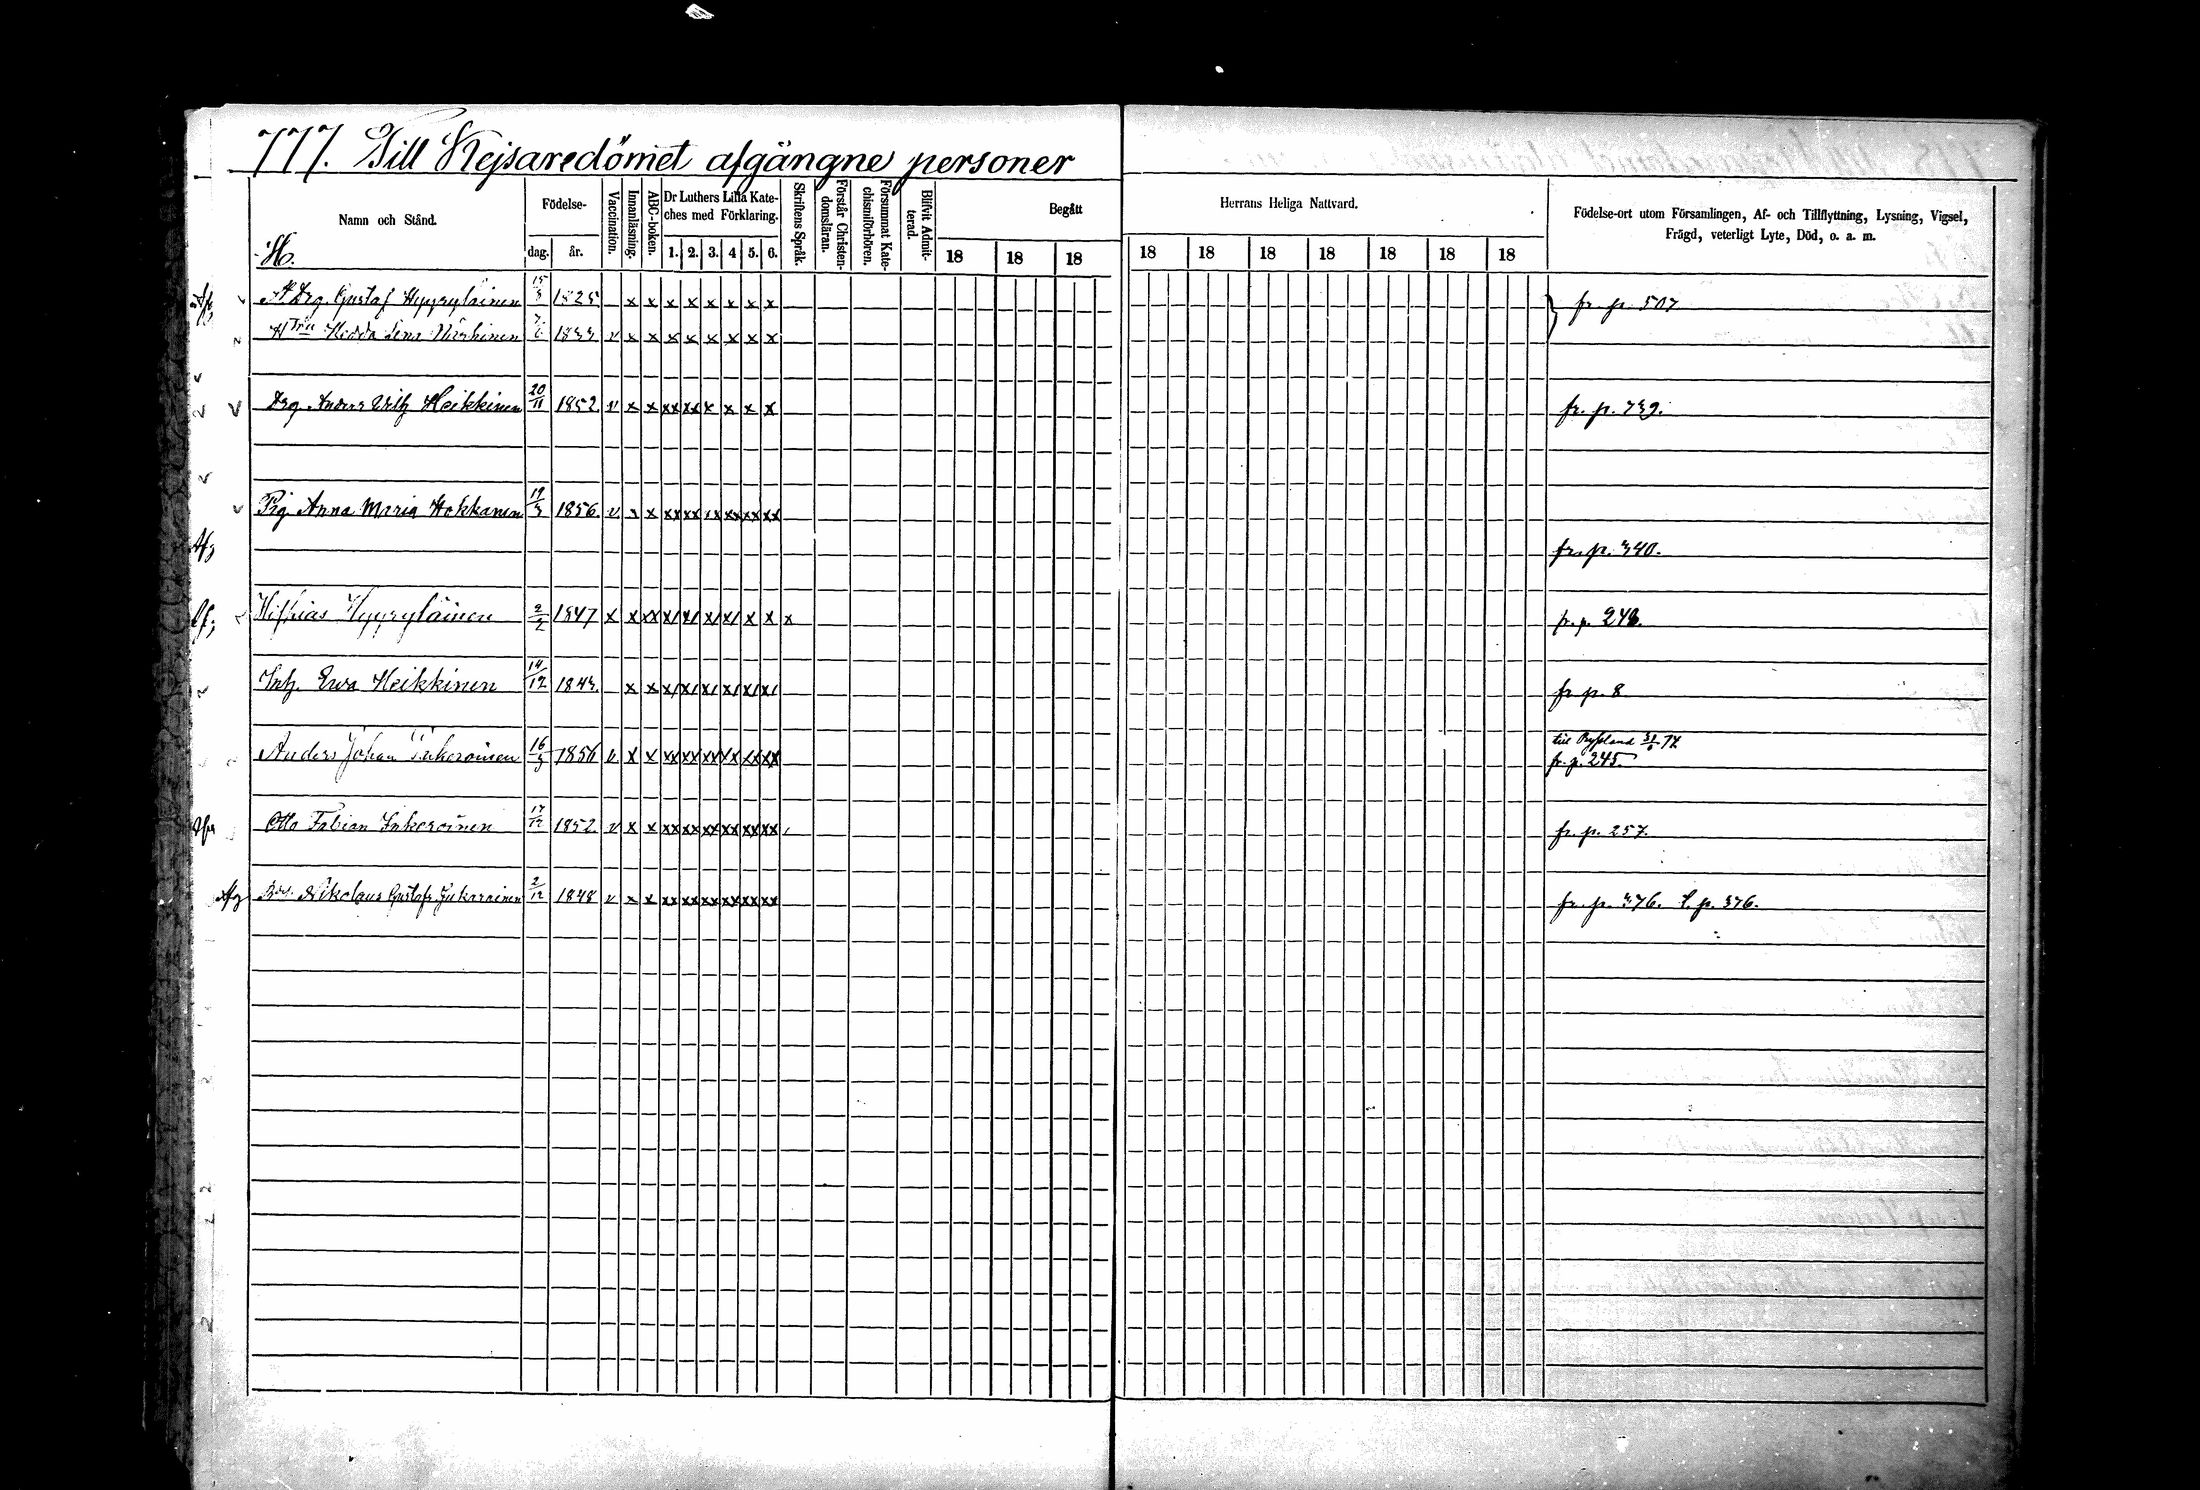 777. Till Kejsaredömet afgångne personer
Namn och Stånd.
H.
Födelse-
dag. år.
Vaccination.
Innanläsning.
ABC-boken.
Dr Luthers Lilla Kate-
ches med Förklaring.
1. 2. 3. 4 5. 6.
Skriftens Språk.
Förstår Christen-
domsläran.
Försummat Kate-
chismiförhören.
Blifvit Admit-
terad.
Begått
18 18 18
Herrans Heliga Nattvard.
18 18 18 18 18 18 18
Födelse-ort utom Församlingen, Af- och Tillflyttning, Lysning, Vigsel,
Frägd, veterligt Lyte, Död, o. a. m.
Drg. Gustaf Hyyryläinen 15/8 1825 x x x x x x x x fr. p. 507
Hedda Lena v x x x x x x x x
Drg. Anders Wilh Heikkinen 20/11 1852 v x x xx xx x x x x fr. p. 739.
Pig Anna Maria Hokkanen 19/3 1856 v x x xx xx xx xx xx xx
Afg fr. p. 340.
Hyyryläinen 2/2 1847 x x xx x/ x/ x/ x/ x x x fr. p.
Inh. Ewa Heikkinen 14/12 1843. x x x/ x/ x/ x/ x/ x/ fr p. 8
till Ryssland
Anders Johan Inkeroinen 16/3 1856 v x x xx xx xx xx xx xx fr. p. 245.
Otto Fabian Inkeroinen 17/12 1852 v x x xx xx xx xx xx xx fr. p. 257.
Afg Nikolaus Gustafs Inkeroinen 2/12 1848 v x x xx xx xx xx xx xx fr. p. 376. l. p. 376.